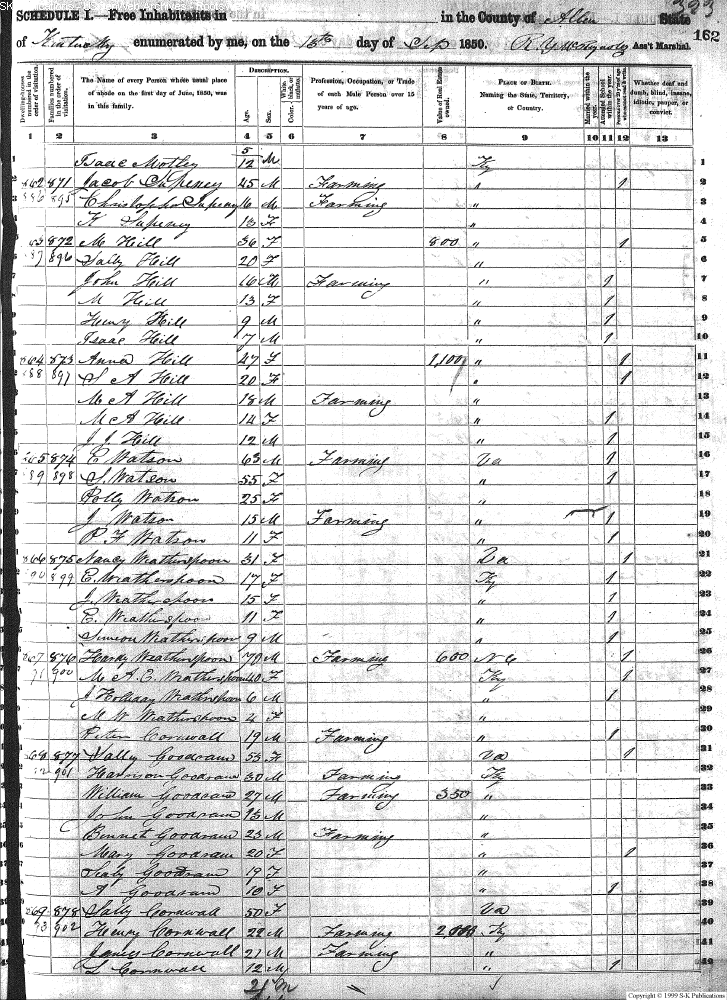 393
SCHEDULE I.—Free Inhabitants in in the County of Allen State
of Kentucky enumerated by me, on the 18th day of Sep 1850. R Y McReynolds Ass't Marshal. 162
Dwelling-houses numbered in the order of visitation. Families numbered in the order of visitation. The Name of every Person whose usual place of abode on the first day of June, 1850, was in this family. DESCRIPTION. Age. Sex. Color, White, black, or mulatto. Profession, Occupation, or Trade of each Male Person over 15 years of age. Value of Real Estate owned. PLACE OF BIRTH. Naming the State, Territory, or Country. Married within the year. Attended School within the year. Persons over 20 y'rs of age who cannot read & write. Whether deaf and dumb, blind, insane, idiotic, pauper, or convict.
1 2 3 4 5 6 7 8 9 10 11 12 13
5
1 Isaac Motley 12 M Ky 1
2 871 Jacob Supeney 45 M Farming " / 2
3 895 Supeney 16 M Farming " 3
4 K Supeney 13 F " 4
5 872 M Hill 36 F 800 " / 5
6 896 Sally Hill 20 F " 6
7 John Hill 16 M Farming " / 7
8 M Hill 13 F " / 8
9 Henry Hill 9 M " / 9
10 Isaac Hill 7 M " / 10
11 873 Anna Hill 47 F 1,100 " / 11
12 897 S A Hill 20 F " / 12
13 M A Hill 18 M Farming " 13
14 M A Hill 14 F " / 14
15 J. J. Hill 12 M " / 15
16 874 E Watson 63 M Farming Va / 16
17 898 S. Watson 55 F " / 17
18 Polly Watson 25 F " 18
19 J Watson 15 M Farming " / 19
20 P F Watson 11 F " / 20
21 875 Nancy Weatherspoon 31 F Va / 21
22 899 E. Weatherspoon 17 F Ky / 22
23 J. Weatherspoon 15 F " / 23
24 E. Weatherspoon 11 F " / 24
25 Simeon Weatherspoon 9 M " / 25
26 876 Hardy Weatherspoon 70 M Farming 600 N C / 26
27 900 M A. E. Weatherspoon 40 F Ky / 27
28 J Weatherspoon 6 M " / 28
29 M W Weatherspoon 4 F " 29
30 Peter Cornwall 19 M Farming " / 30
31 877 Sally Goodrum 53 F Va / 31
32 901 Harrison Goodrum 30 M Farming Ky 32
33 William Goodrum 27 M Farming 350 " 33
34 John Goodrum 13 M " 34
35 Bennet Goodrum 23 M Farming " 35
36 Mary Goodrum 20 F " / 36
37 Goodrum 19 F " 37
38 A Goodrum 10 F " / 38
39 69 878 Sally Cornwall 50 F Va 39
40 902 Henry Cornwall 22 M Farming 2,000 Ky 40
41 James Cornwall 21 M Farming " 41
42 S Cornwall 12 M " / 42
21 M
Copyright © 1999 S-K Publications